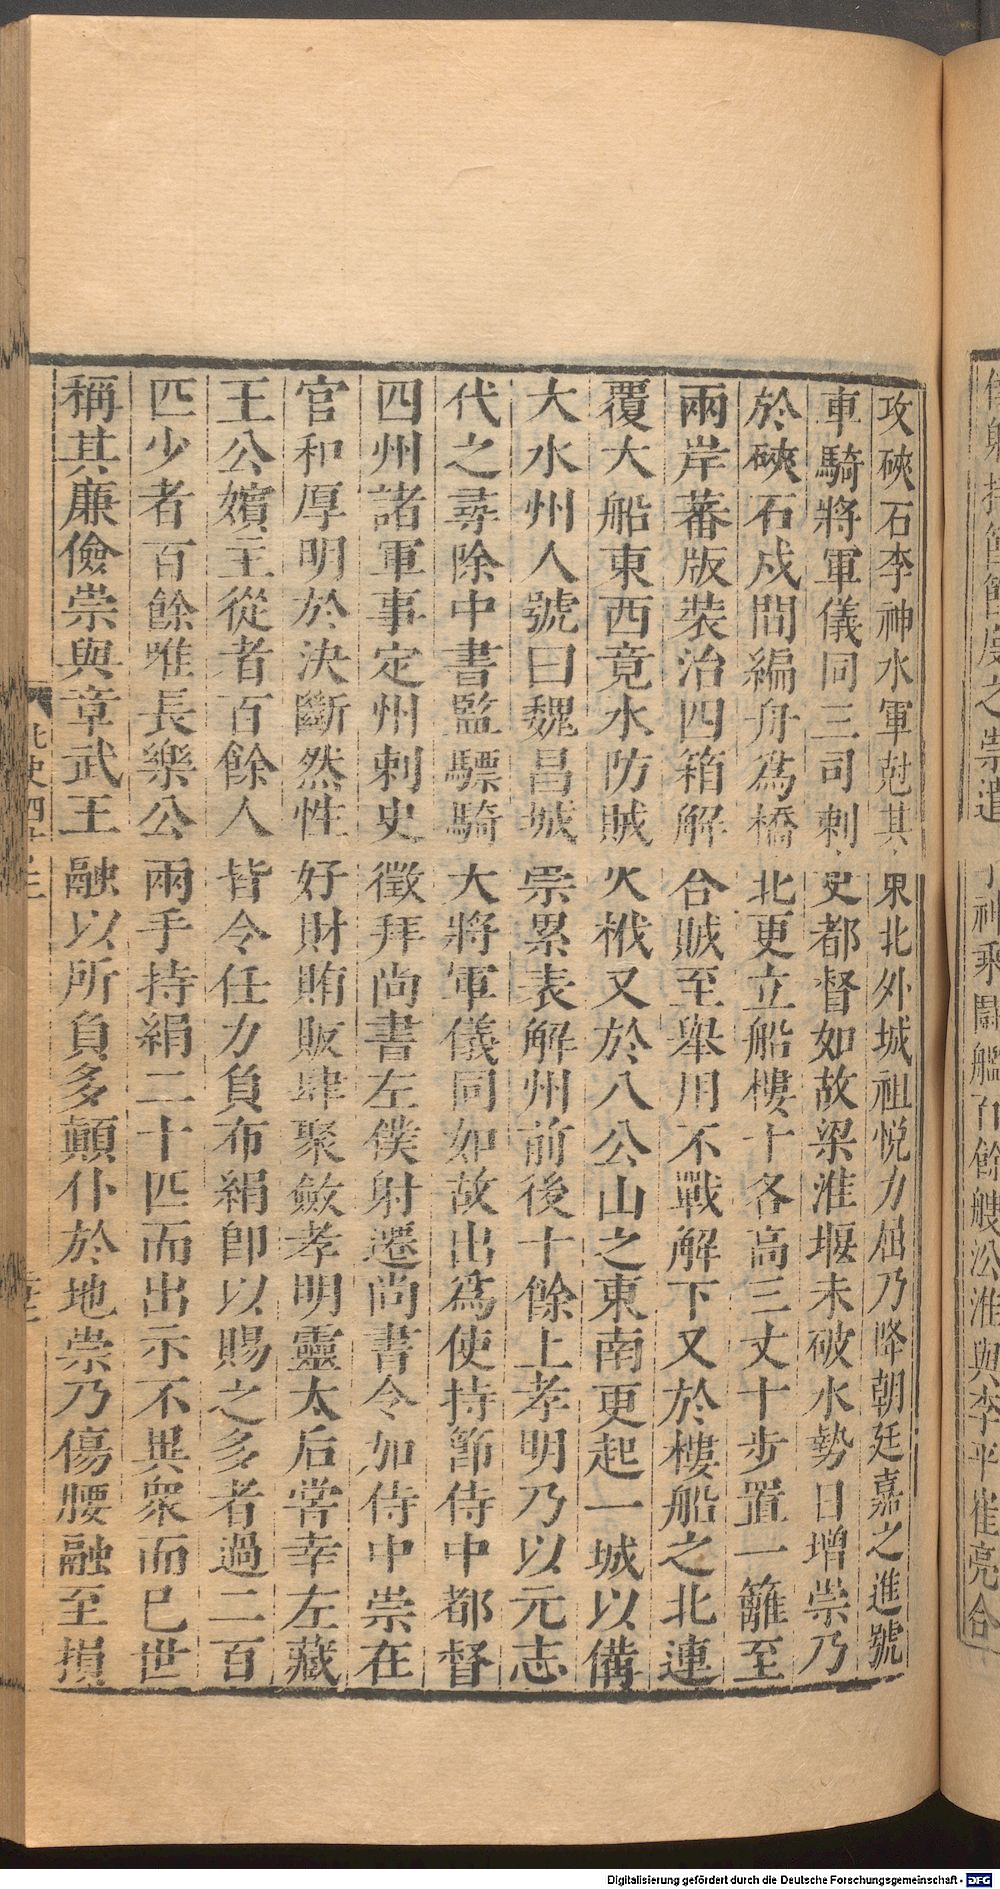 攻硤石李神水軍尅其東北外城祖悅力屈乃降朝廷嘉之進號
車騎將軍儀同三司刺史都督如故梁淮堰未破水勢日增崇乃
於硤石戍間編舟爲橋北更立船樓十各高三丈十步置一籬至
兩岸蕃版裝治四箱解合賊至舉用不戰解下又於樓船之北連
覆大船東西竟水防賊火栰又於八公山之東南更起一城以備
大水州人號曰魏昌城崇累表解州前後十餘上孝明乃以元志
代之尋除中書監驃騎大將軍儀同如故出爲使持節侍中都督
四州諸軍事定州刺史徵拜尚書左僕射遷尚書令加侍中崇在
官和厚明於決斷然性好財賄販肆聚斂孝明靈太后嘗幸左藏
王公嬪主從者百餘人皆令任力負布絹卽以賜之多者過二百
匹少者百餘唯長樂公兩手持絹二十匹而出示不異衆而已世
稱其廉儉崇與章武王融以所負多顛仆於地崇乃傷腰融至損
北史四十三
之崇遣
神乘鬬艦百餘艘泝淮與李平崔亮合
Digitalisierung gefördert durch die Deutsche Forschungsgemeinschaft - DFG